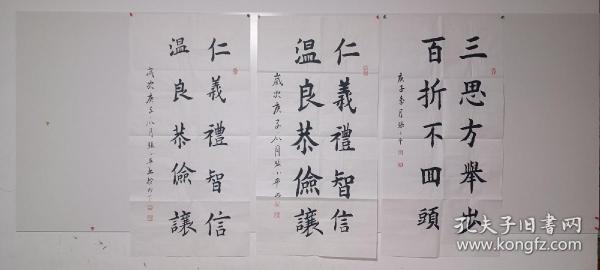 三思方舉步
百折不回頭
仁義禮智信
温良恭儉讓
歲次庚子八月張小平
仁義禮智信
温良恭儉讓
歲次庚子八月張小平
孔夫子旧书网
www.kongfz.com